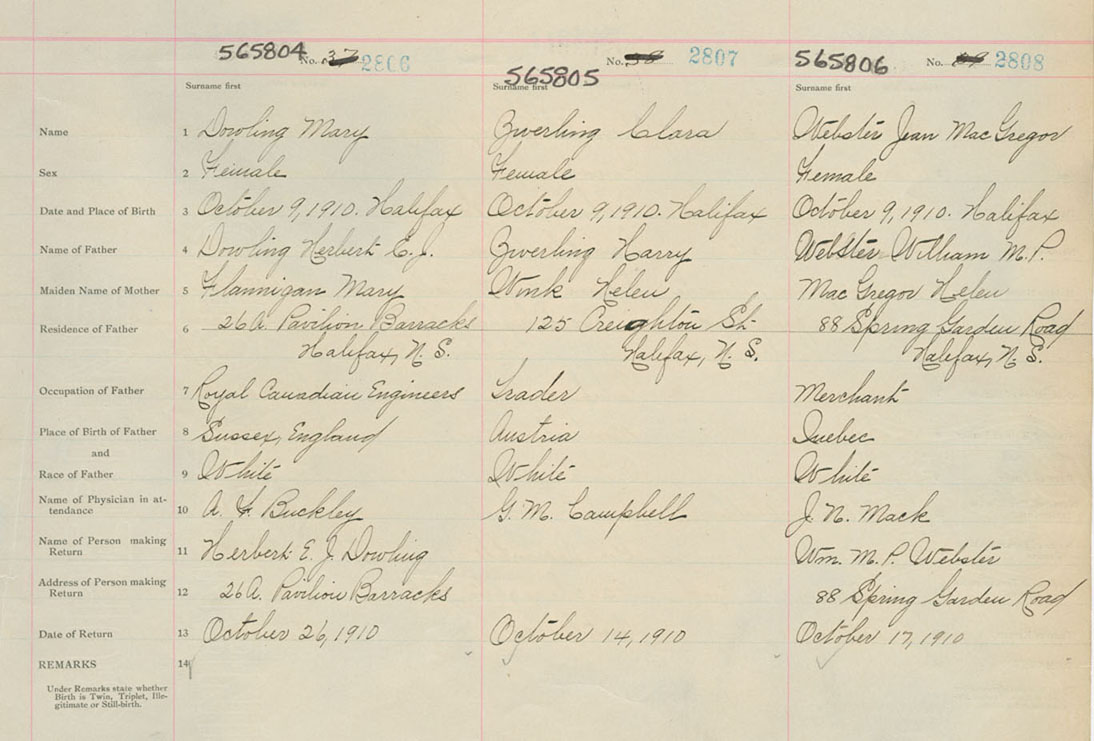 565804 No. 37 2806
565805 No. 38 2807
565806 No. 2808
Surname first Surname first Surname first
Name 1 Dowling Mary Zwerling Clara Webster Jean MacGregor
Sex 2 Female Female Female
Date and Place of Birth 3 October 9, 1910. Halifax October 9, 1910. Halifax October 9, 1910. Halifax
Name of Father 4 Dowling Herbert E. J. Zwerling Harry Webster William M. P.
Maiden Name of Mother 5 Flannigan Mary Wink Helen MacGregor Helen
Residence of Father 6 26A. Pavilion Barracks 125 Creighton St. 88 Spring Garden Road
Halifax, N. S. Halifax, N. S. Halifax, N. S.
Occupation of Father 7 Royal Canadian Engineers Trader Merchant
Place of Birth of Father 8 Sussex, England Austria Quebec
and
Race of Father 9 White White White
Name of Physician in at-
tendance 10 A. F. Buckley G. M. Campbell J. N. Mack
Name of Person making
Return 11 Herbert E. J. Dowling Wm. M. P. Webster
Address of Person making
Return 12 26A. Pavilion Barracks 88 Spring Garden Road
Date of Return 13 October 26, 1910 October 14, 1910 October 17, 1910
REMARKS 14
Under Remarks state whether
Birth is Twin, Triplet, Ille-
gitimate or Still-birth.